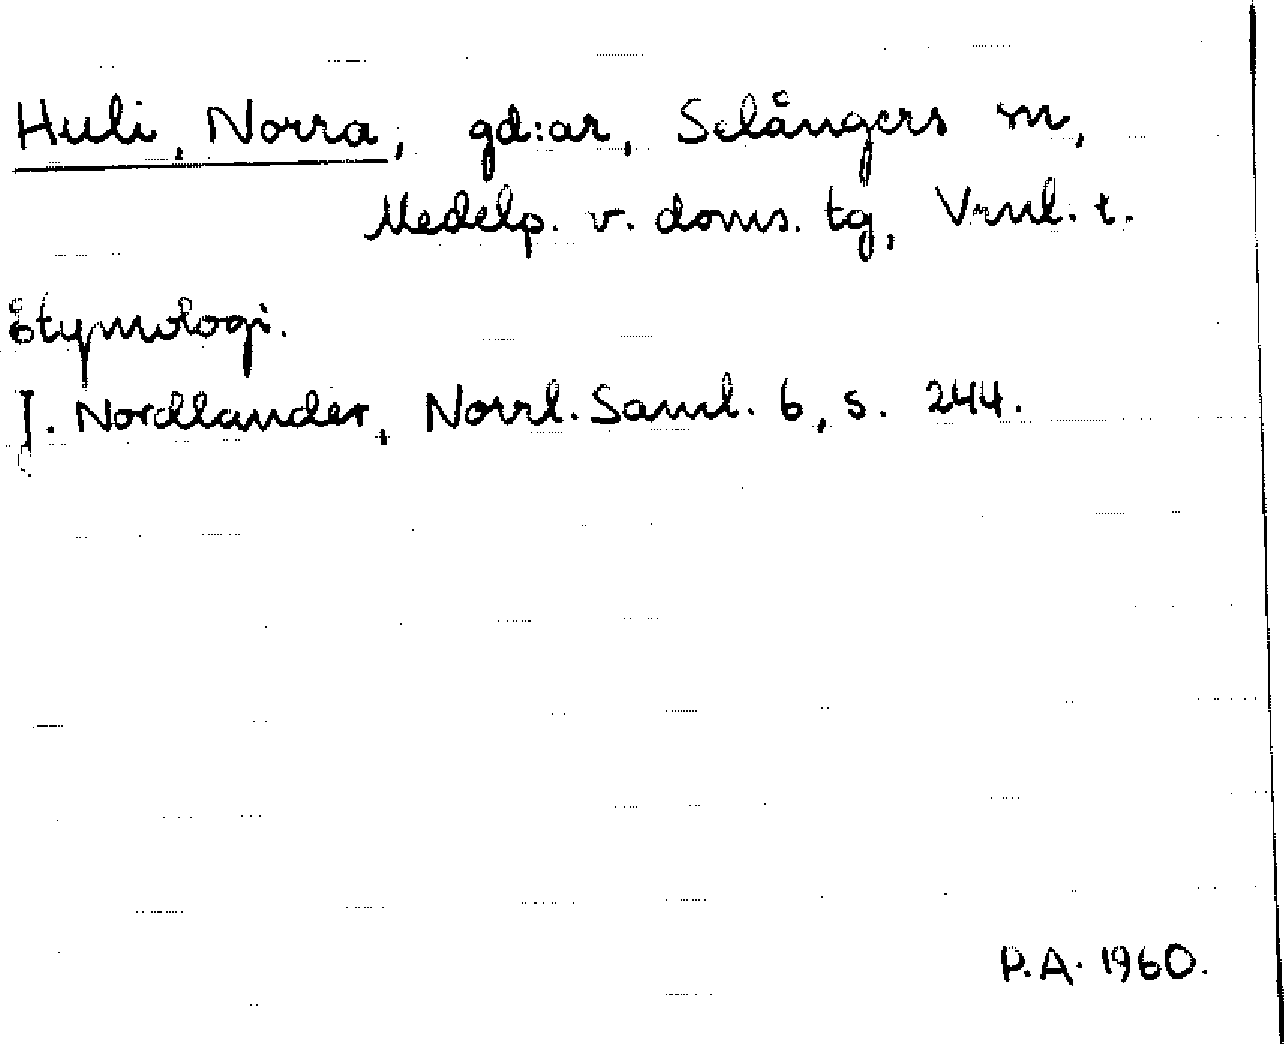 Huli, Norra, gd:ar, Selångers sn,
Medelp. v. doms. tg, Vrnl. t.
Etymologi.
J. Nordlander, Norrl. Saml. 6, s. 244.
P.A. 1960.